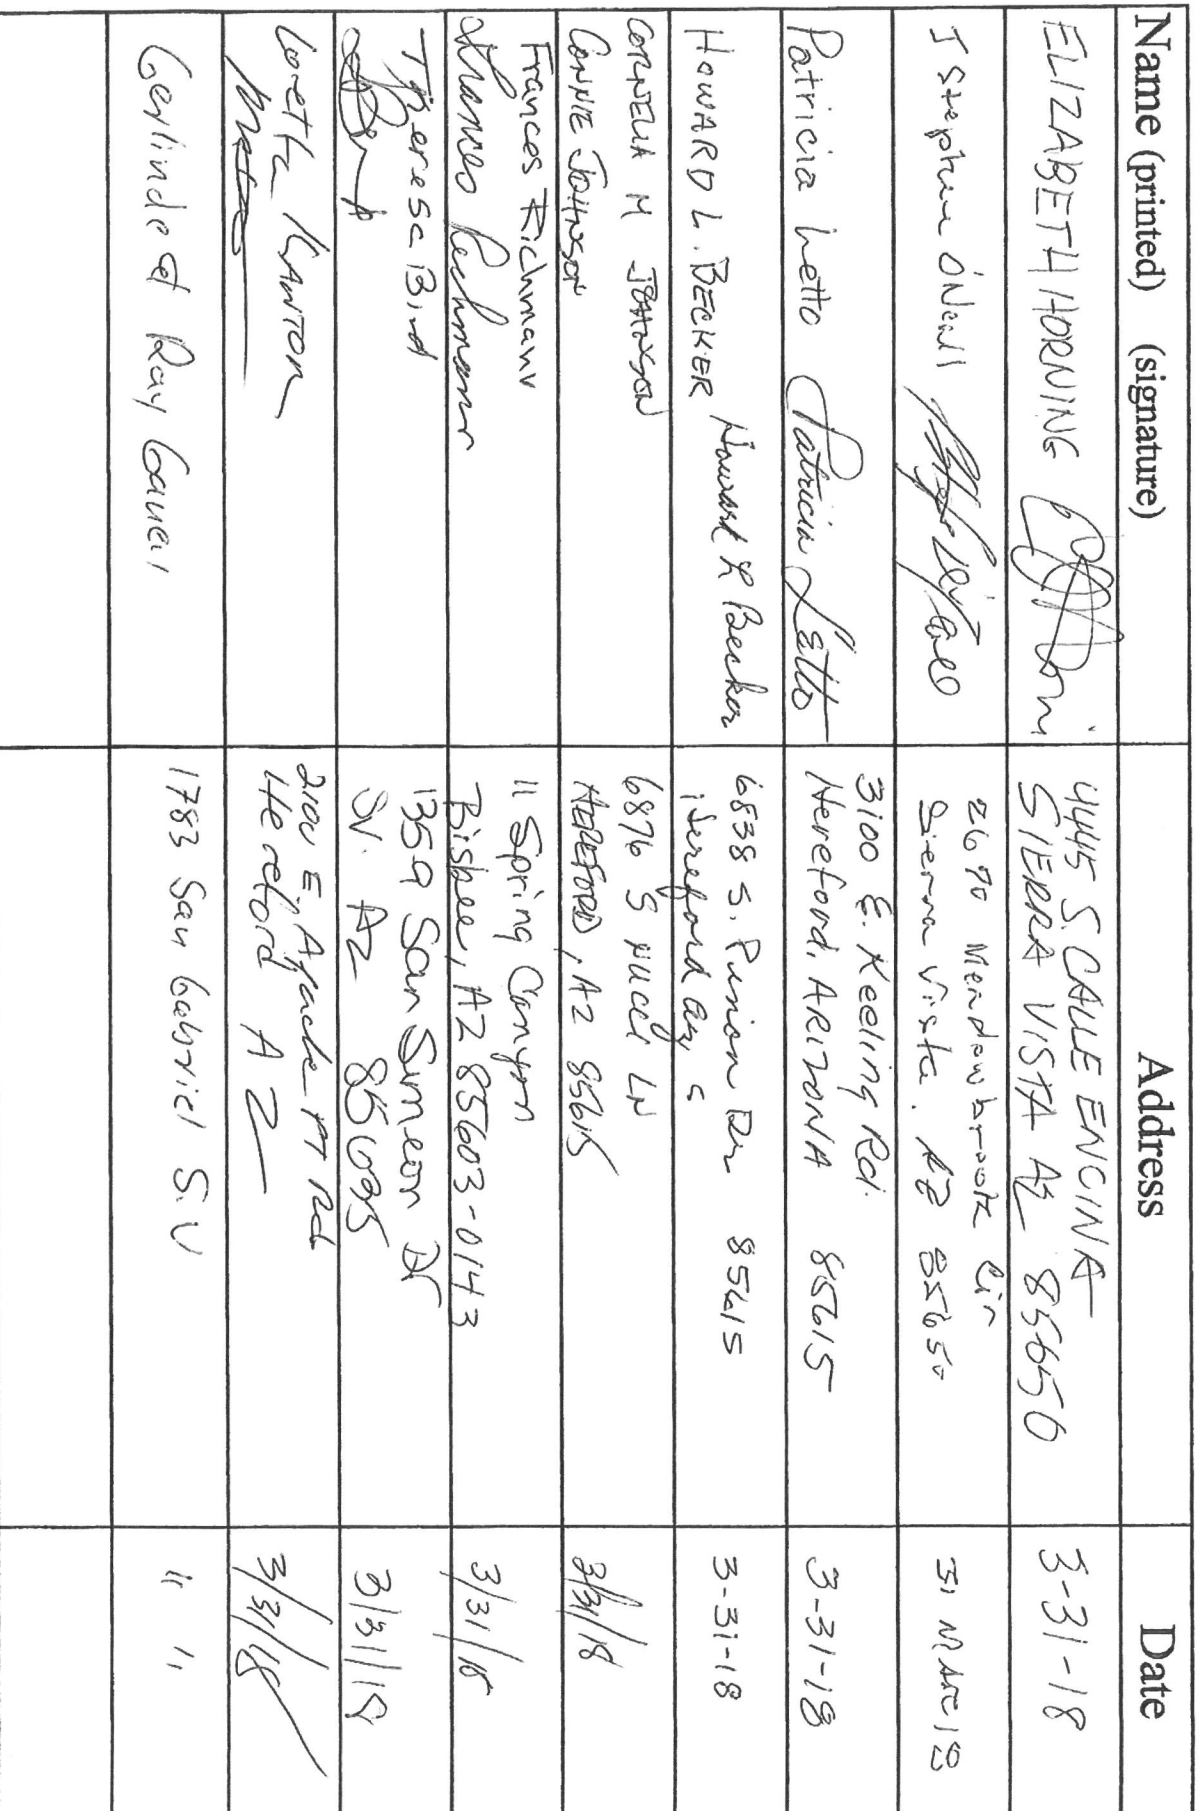 Name (printed) (signature) Address Date
ELIZABETH HORNING
4445 S. CALLE ENCINA
SIERRA VISTA AZ 85650
3-31-18
J Stephen O'Neill
2690 Meadowbrook Cir
Sierra Vista, AZ 85650
31 Mar 18
Patricia Letto Patricia Letto
3100 E. Keeling Rd.
Hereford, ARIZONA 85615
3-31-18
HOWARD L. BECKER Howard L Becker
6838 S. Pinion Dr 85615
Hereford az,
3-31-18
CORNELIA M JOHNSON
CONNIE JOHNSON
6876 S LN
HEREFORD, AZ 85615
3/31/18
Frances Richmann
Frances Richmann
11 Spring Canyon
Bisbee, AZ 85603-0143
3/31/18
Therese Bird
1359 San Simeon Dr
SV. AZ 85635
3/31/18
Loretta KANTOR
2100 E. Apache PT Rd
Hereford AZ
3/31/18
Gerlinde & Ray
1783 San Gabriel S.V
" "